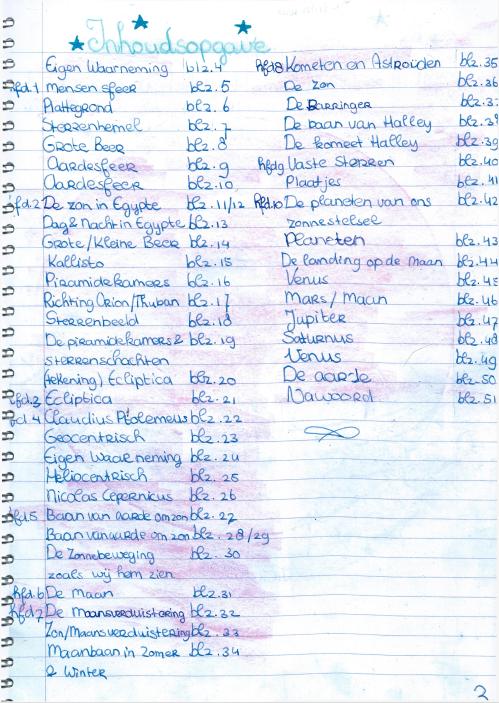 Inhoudsopgave
Eigen Waarneming blz.4
hfd.1 Mensen sfeer blz.5
Plattegrond blz.6
Sterrenhemel blz.7
Grote Beer blz.8
Aardesfeer blz.9
Aardesfeer blz.10
hfd.2 De zon in Egypte blz.11/12
Dag & Nacht in Egypte blz.13
Grote/Kleine Beer blz.14
Kallisto blz.15
Piramidekamers blz.16
Richting Orion/Thuban blz.17
Sterrenbeeld blz.18
De piramidekamers & blz.19
sterrenschachten
(tekening) Ecliptica blz.20
hfd.3 Ecliptica blz.21
hfd.4 Claudius Ptolemeus blz.22
Geocentrisch blz.23
Eigen Waarneming blz.24
Heliocentrisch blz.25
Nicolas Copernicus blz.26
hfd.5 Baan van aarde om zon blz.27
Baan van aarde om zon blz.28/29
De Zonnebeweging blz.30
zoals wij hem zien
hfd.6 De Maan blz.31
hfd.7 De Maansverduistering blz.32
Zon/Maansverduistering blz.33
Maanbaan in Zomer blz.34
& Winter
hfd.8 Kometen en Astroïden blz.35
De Zon blz.36
De Barringer blz.37
De baan van Halley blz.38
De komeet Halley blz.39
hfd.9 Vaste Sterren blz.40
Plaatjes blz.41
hfd.10 De planeten van ons blz.42
zonnestelsel
Planeten blz.43
De landing op de Maan blz.44
Venus blz.45
Mars/Maan blz.46
Jupiter blz.47
Saturnus blz.48
Venus blz.49
De aarde blz.50
Nawoord blz.51
2